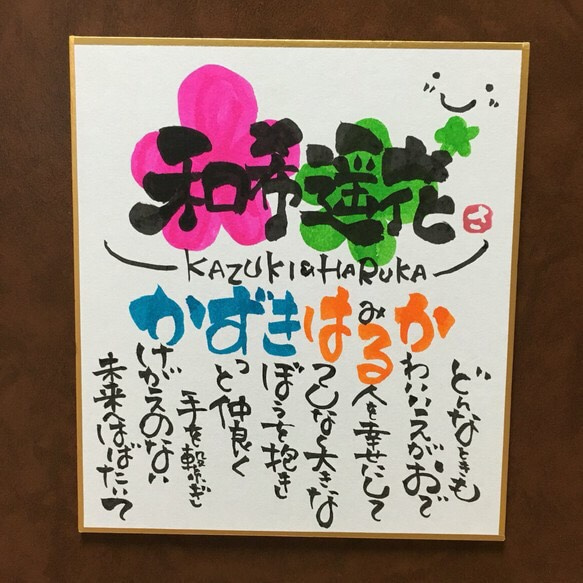 和希遥花
さ
KAZUKI & HARUKA
かずきはるか
どんなときも
わいいえがおで
み
人を幸せにして
てしない大きな
ぼうを抱き
っと仲良く
手を繋ぎ
けがえのない
未来へはばたいて